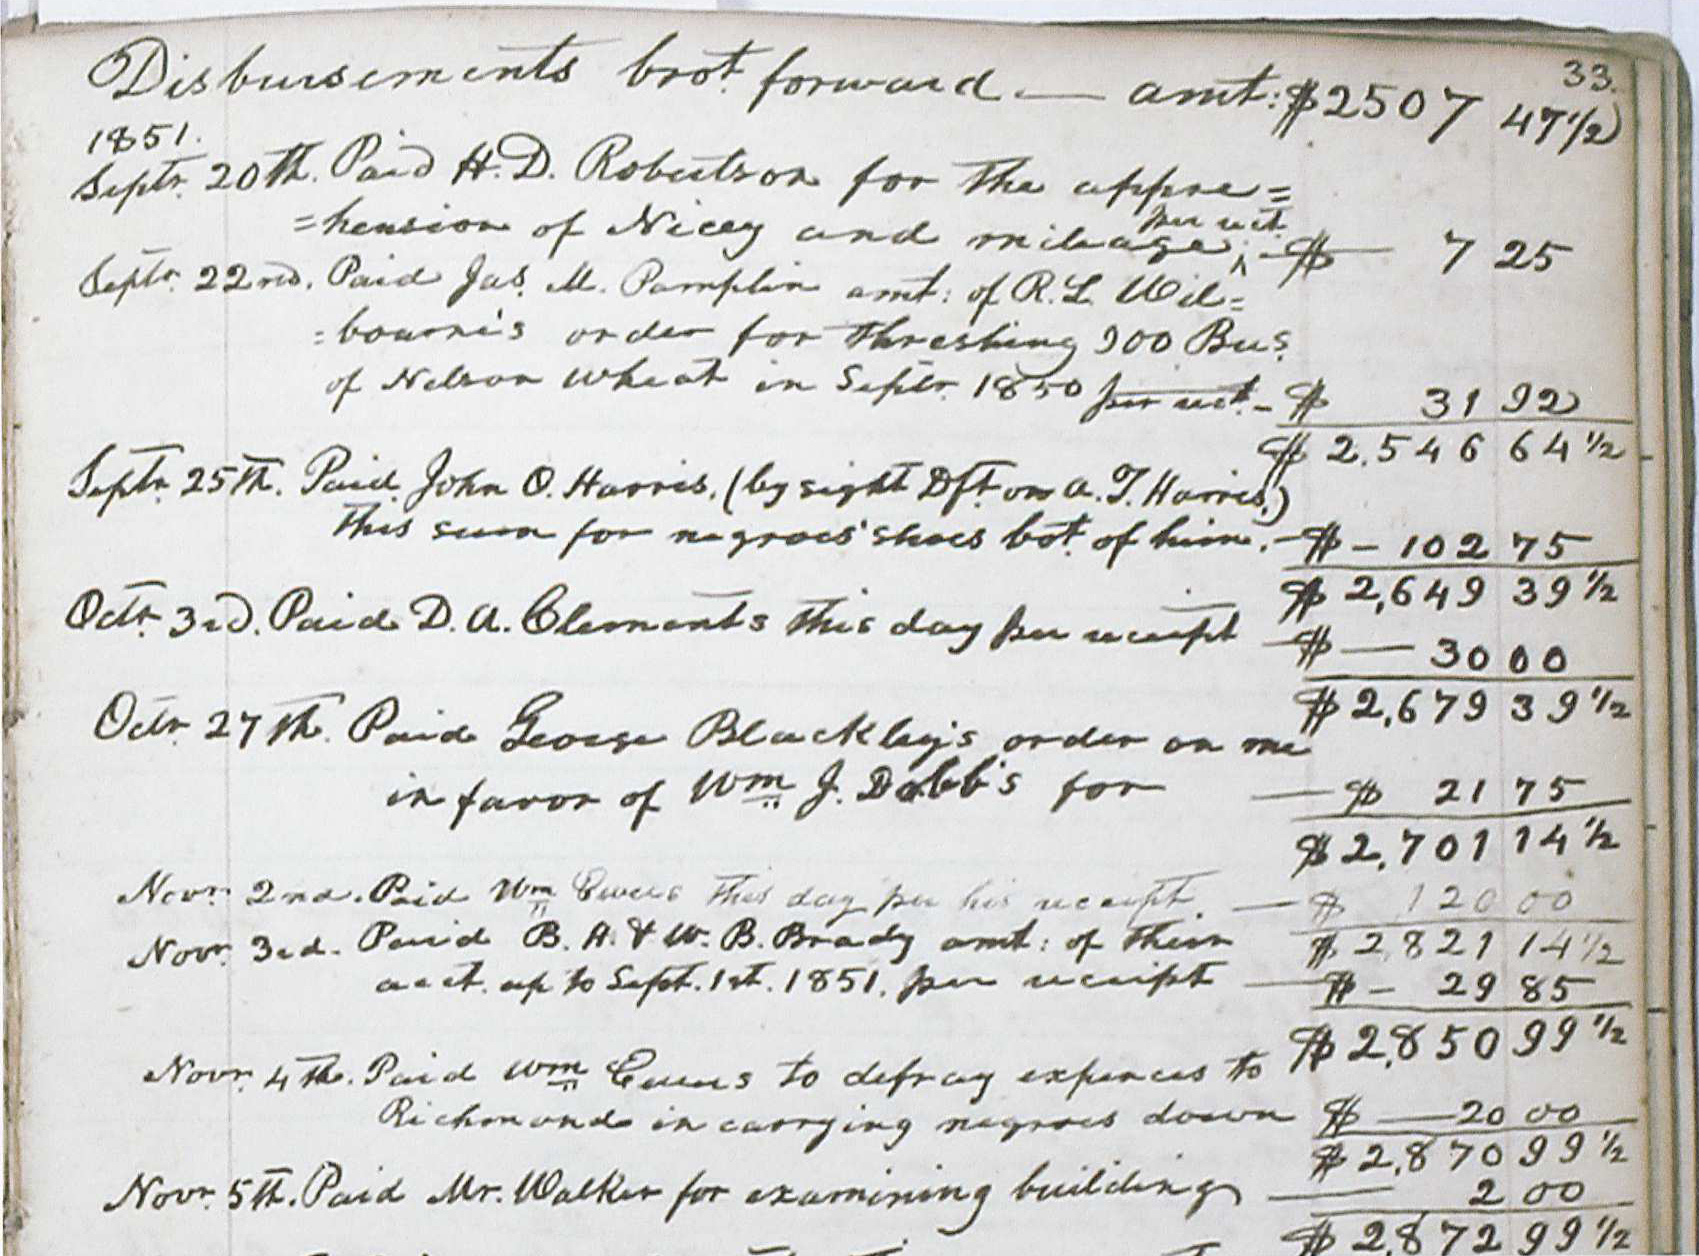 33.
Disbursements brot. forward — amt: $2507 47 1/2
1851.
Septr. 20th. Paid H. D. Robertson for the appre=
=hension of Nicey and mileage, per rect. - $ — 7 25
Septr. 22nd. Paid Jas. M. Pamplin amt: of R. L. Wil=
=bourn's order for threshing 900 Bus.
of Nelson wheat in Septr. 1850 per rect. - $ 31 92
$ 2,546 64 1/2
Septr. 25th. Paid John O. Harris, (by sight Dft. on A. T. Harris,)
this sum for negroes' shoes bot. of him. - $ - 102 75
$ 2,649 39 1/2
Octr. 3rd. Paid D. A. Clements this day per receipt — $ — 30 00
$ 2,679 39 1/2
Octr. 27th. Paid George Blackley's order on me
in favor of Wm J. Dabb's for — $ 21 75
$ 2,701 14 1/2
Novr. 2nd. Paid Wm this day per his receipt. — $ 120 00
$ 2,821 14 1/2
Novr. 3rd. Paid B. A. & W. B. Brady amt: of their
acct. up to Sept. 1st. 1851. per receipt — $ - 29 85
$ 2,850 99 1/2
Novr. 4th. Paid Wm to defray expences to
Richmond in carrying negroes down $ — 20 00
$ 2,870 99 1/2
Novr. 5th. Paid Mr. Walker for examining building — 2 00
$ 2,872 99 1/2